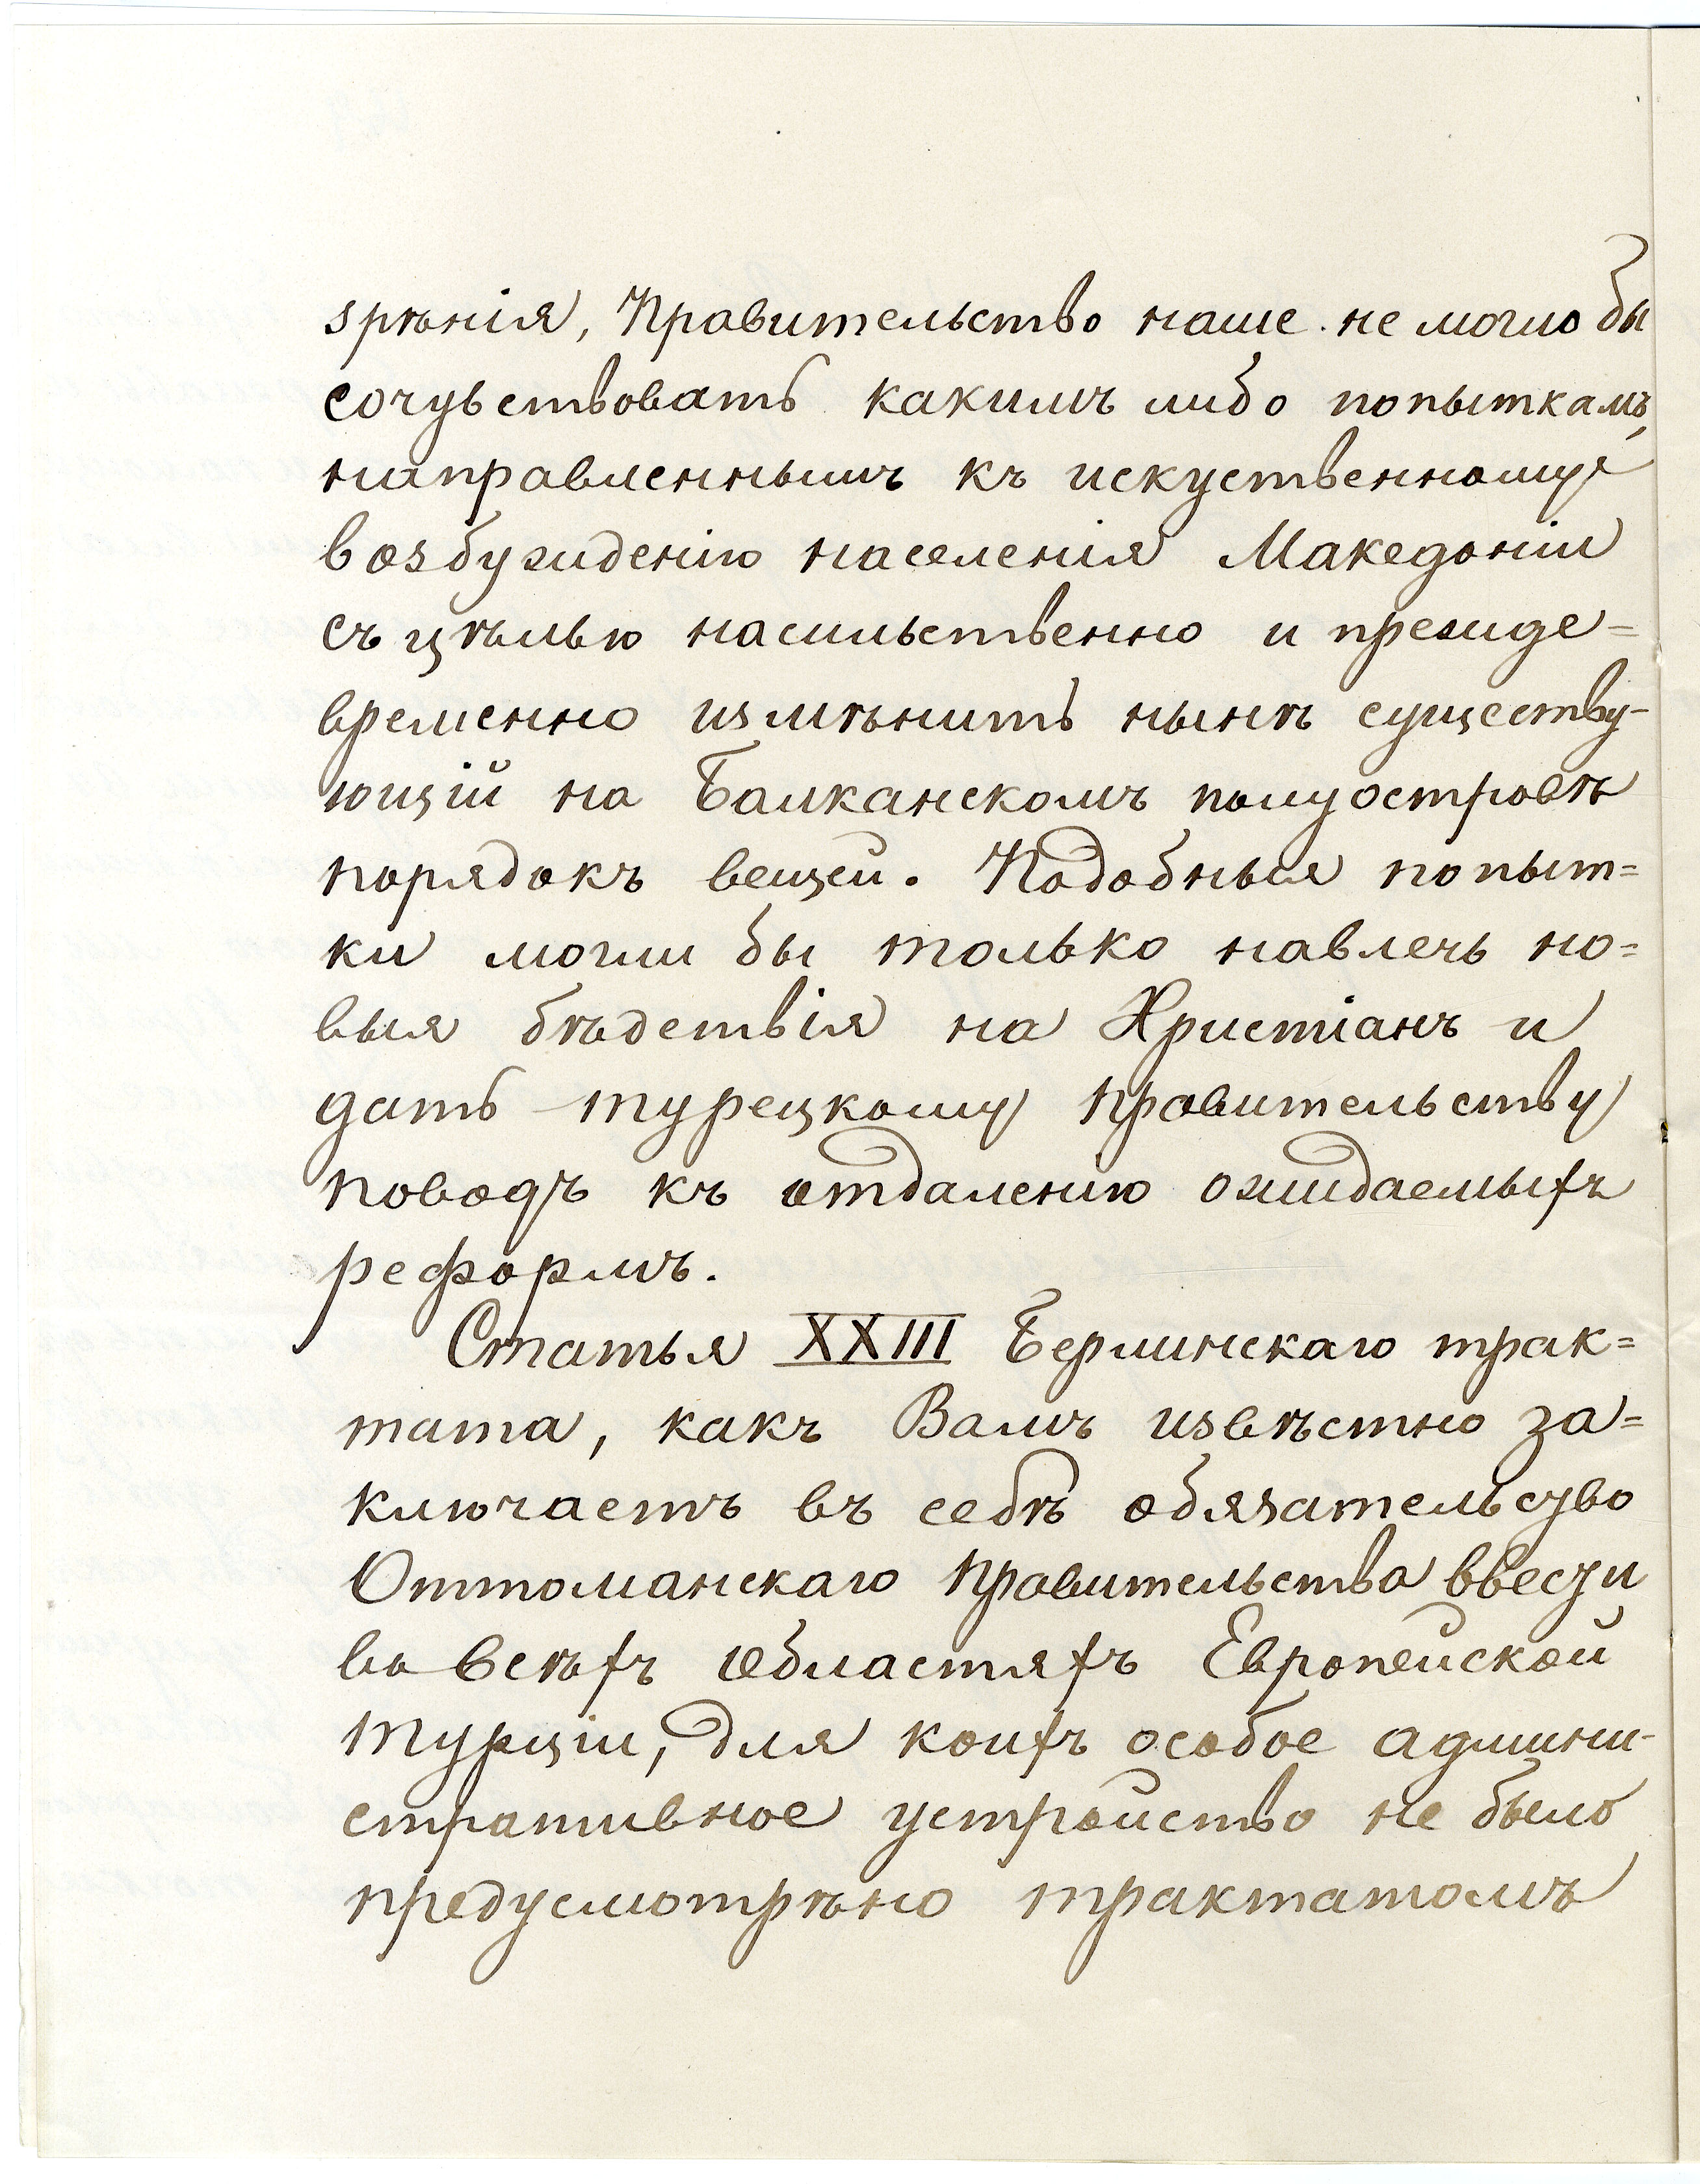 зрѣнія, Правительство наше не могло бы
сочувствовать какимъ либо попыткамъ,
направленнымъ къ искуственному
возбужденію населенія Македоніи
съ цѣлью насильственно и прежде=
временно измѣнить нынѣ существу-
ющій на Балканскомъ полуостровѣ
порядокъ вещей. Подобныя попыт=
ки могли бы только навлечь но=
выя бѣдствія на Христіанъ и
дать турецкому правительству
поводъ къ отдаленію ожидаемыхъ
реформъ.
Статья XXIII Берлинскаго трак=
тата, какъ Вамъ извѣстно за=
ключаетъ въ себѣ обязательство
Оттоманскаго правительства ввести
во всѣхъ областяхъ Европейской
Турціи, для коихъ особое админи-
стративное устройство не было
предусмотрѣно трактатомъ